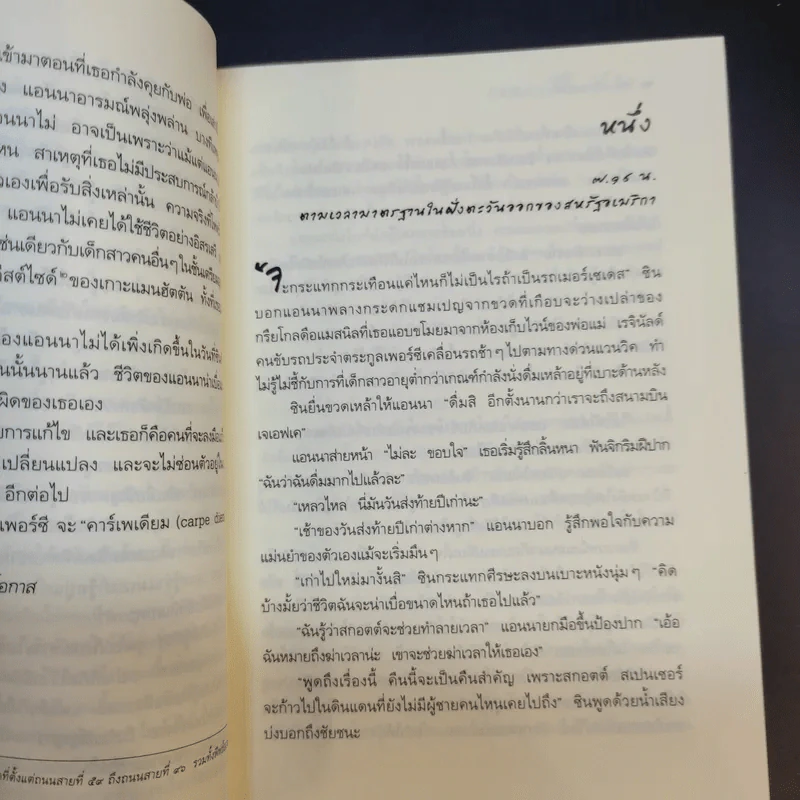 เข้ามาตอนที่เธอกำลังคุยกับพ่อ
แอนนาอารมณ์พลุ่งพล่าน
อนนาไม่ อาจเป็นเพราะว่าแม้แต่แอน
หน สาเหตุที่เธอไม่มีประสบการณ์
วเองเพื่อรับสิ่งเหล่านั้น ความจริงที่
แอนนาไม่เคยได้ใช้ชีวิตอย่างอิสรเสรี
ช่นเดียวกับเด็กสาวคนอื่นๆ ในชั้นเตรียม
สต์ไซด์๒ ของเกาะแมนฮัตตัน ทั้งที่
องแอนนาไม่ได้เพิ่งเกิดขึ้นในวันที่
นนั้นนานแล้ว ชีวิตของแอนนาน่าเบื่อ
ผิดของเธอเอง
ยการแก้ไข และเธอก็คือคนที่จะลงมือ
เปลี่ยนแปลง และจะไม่ซ่อนตัวอยู่ใน
อีกต่อไป
เพอร์ซี จะ “คาร์เพเดียม (carpe diem
อกาส
ที่ตั้งแต่ถนนสายที่ ๕๙ ถึงถนนสายที่ ๙๖ รวมทั้ง
หนึ่ง
๗.๑๕ น.
ตามเวลามาตรฐานในฝั่งตะวันออกของสหรัฐอเมริกา
“จะกระแทกกระเทือนแค่ไหนก็ไม่เป็นไรถ้าเป็นรถเมอร์เซเดส” ซิน
บอกแอนนาพลางกระดกแชมเปญจากขวดที่เกือบจะว่างเปล่าของ
กรีย์โกลดือแมสนิลที่เธอแอบขโมยมาจากห้องเก็บไวน์ของพ่อแม่ เรจินัลด์
คนขับรถประจำตระกูลเพอร์ซีเคลื่อนรถช้าๆ ไปตามทางด่วนแวนวิค ทำ
ไม่รู้ไม่ชี้กับการที่เด็กสาวอายุต่ำกว่าเกณฑ์กำลังนั่งดื่มเหล้าอยู่ที่เบาะด้านหลัง
ซินยื่นขวดเหล้าให้แอนนา “ดื่มสิ อีกตั้งนานกว่าเราจะถึงสนามบิน
เจเอฟเค”
แอนนาส่ายหน้า “ไม่ละ ขอบใจ” เธอเริ่มรู้สึกลิ้นหนา ฟันจิกริมฝีปาก
“ฉันว่าฉันดื่มมากไปแล้วละ”
“เหลวไหล นี่มันวันส่งท้ายปีเก่านะ”
“เช้าของวันส่งท้ายปีเก่าต่างหาก” แอนนาบอก รู้สึกพอใจกับความ
แม่นยำของตัวเองแม้จะเริ่มมึนๆ
“เก่าไปใหม่มางั้นสิ” ซินกระแทกศีรษะลงบนเบาะหนังนุ่มๆ “คิด
บ้างมั้ยว่าชีวิตฉันจะน่าเบื่อขนาดไหนถ้าเธอไปแล้ว”
“ฉันรู้ว่าสกอตต์จะช่วยทำลายเวลา” แอนนายกมือขึ้นป้องปาก “เอ้อ
ฉันหมายถึงฆ่าเวลาน่ะ เขาจะช่วยฆ่าเวลาให้เธอเอง”
“พูดถึงเรื่องนี้ คืนนี้จะเป็นคืนสำคัญ เพราะสกอตต์ สเปนเซอร์
จะก้าวไปในดินแดนที่ยังไม่มีผู้ชายคนไหนเคยไปถึง” ซินพูดด้วยน้ำเสียง
บ่งบอกถึงชัยชนะ